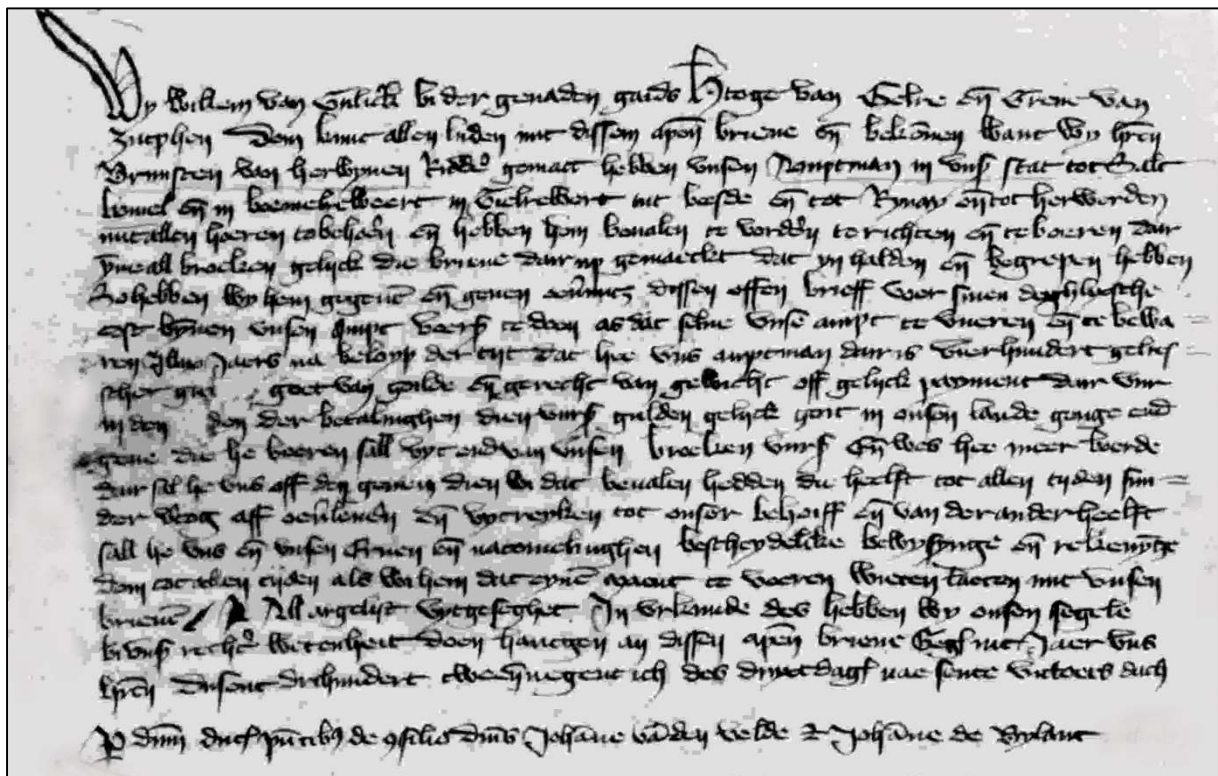 Wy Willem van Guilick bi der genaden gaids Htoge van Gelre eñ Greve van
Zutphen Doen kunt allen luden mit dissem apeñ brieve eñ bekennen want wy hren
Brunsten van herwynen Ridder gemact hebben unsen Amptman in unser stat tot Salt
bomel eñ in boemelreweert in Tielreweert int beesde eñ tot Rynay eñ tot herwerden
mit allen hoeren tobehoeñ eñ hebben hem bevalen te vorderen te richten eñ te boeren dair
ynne all broecken gelijck die brieve dair up gemaeckt dat yn halden eñ begrepen hebben
So hebben wy hem gegeven eñ geven overmits dissen offen brieff voer sinen
cost bynnen unsen ampt voers te doen as dat selve unse ampt te vueren eñ te bewa
ren Jaers na beloyp der tijt dat hee uns amptman dair is vierhundert gelres
scher goet van goulde eñ gerecht van gewicht off gelijck payment dair vur
in den der betalinghen dien vurs gulden gelijck goit in onsen lande genge end
geve die he boeren sall uyt end van unsen broeken vurs Eñ wes hee meer boerde
dair sal he uns off den gienen dien wi dat bevalen hedden die helft tot allen tyden sun
der vertog aff overleveren eñ uytreyken tot onser behoiff eñ van der ander heelft
sall he uns eñ unsen Erven eñ nacomelinghen bescheydelike bewysynge eñ rekenynge
doen tot allen tijden als wi hem dat eynen maent te voeren wieten laeten mit unsen
brieven All argelist uytgeseghet In urkunde des hebben wy onsen segele
bi unser rechter wetenheit doen hangen an dissen apeñ brieve Gegeven int Jaer uns
hren Dusent driehundert tweeñnegentich des dinxtdags nae sente victoers dach
P dnm ducem pntibus de consilio dnis Johanne van den velde et Johanne de Bylant